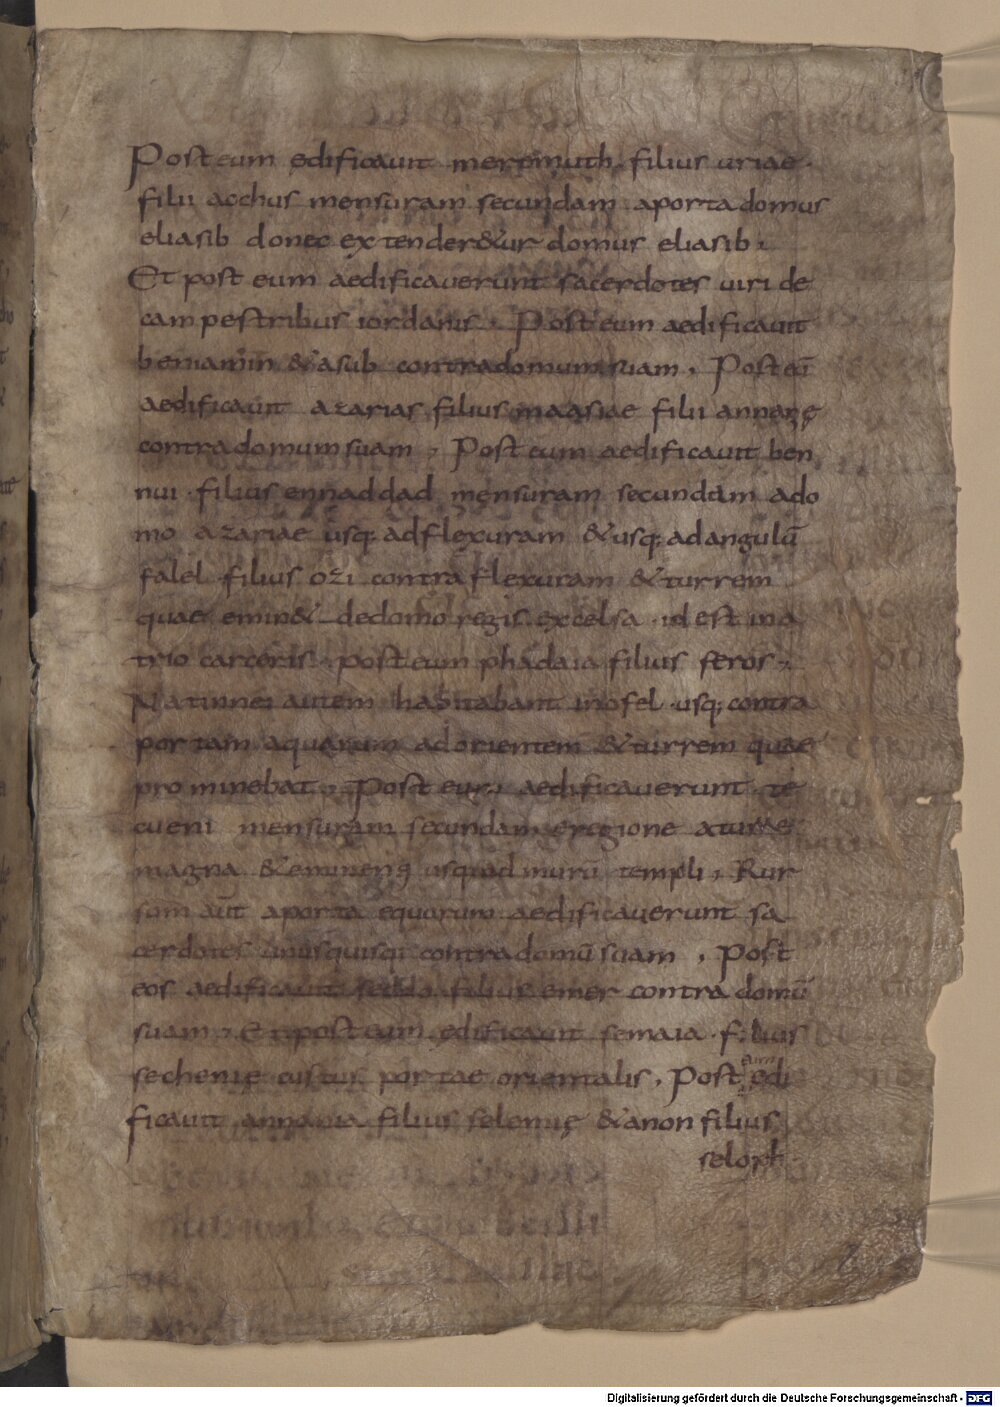 Post eum edificauit meremuth filius uriae ·
filii acchus mensuram secundam aporta domus
eliasib donec extender&ur domus eliasib ·
Et post eum aedificauerunt sacerdotes uiri de
campestribus iordanis · Post eum aedificauit
beniamin & asub contra domum suam · Post eū
aedificauit azarias filius maasiae filii annaeę
contra domum suam · Post eum aedificauit ben
nui · filius ennaddad mensuram secundam ado
mo azariae usq; adflexuram & usq; ad angulū
falel filius ozi contra flexuram & turrem
quae emin& dedomo regis excelsa · id est in a
trio carceris · post eum phadaia filius feros ·
Natinnei autem habitabant inofel usq; contra
portam aquarum ad orientem & turrem quae
prominebat · Post eum aedificauerunt te
cueni mensuram secundam eregione aturre
magna & eminens usq; ad murū templi · Rur
sum aūt aporta equorum aedificauerunt sa
cerdotes unusquisq; contra domū suam · Post
eos aedificauit seddo filius emer contra domū
suam · Et post eum edificauit semaia · filius
sechenię custus portae orientalis · Post eum edi
ficauit annania filius selemię & anon filius
seloph
Digitalisierung gefördert durch die Deutsche Forschungsgemeinschaft - DFG